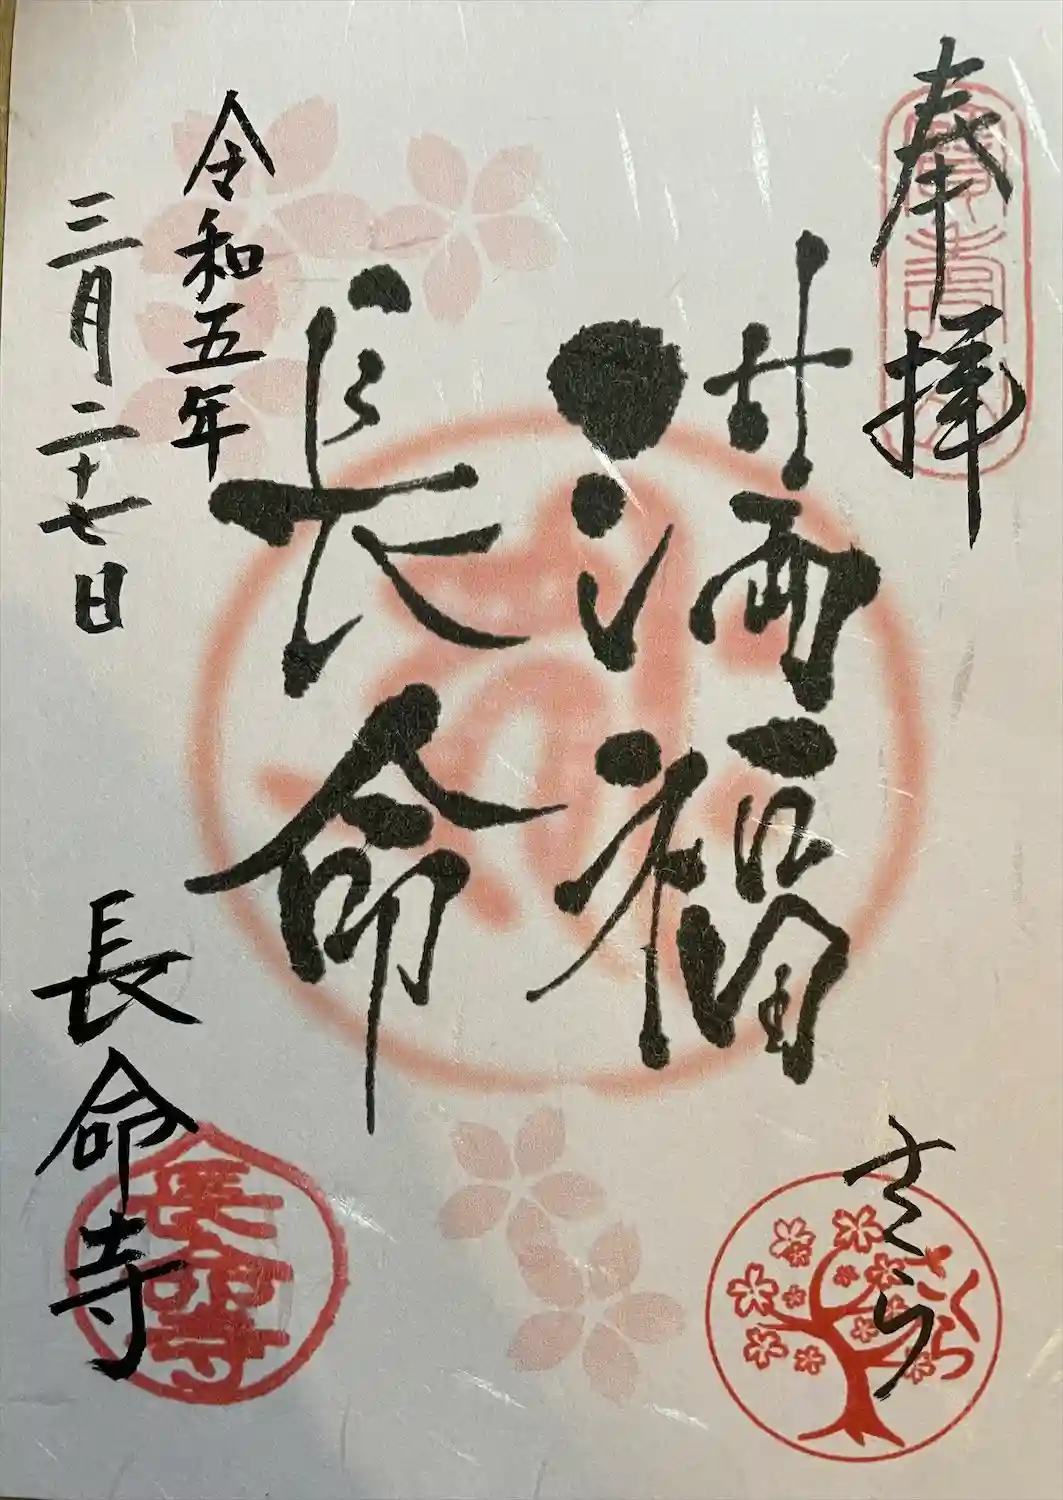 奉拝
満福
長命
令和五年
三月二十七日
長命寺
長命寺
さくら
さくら